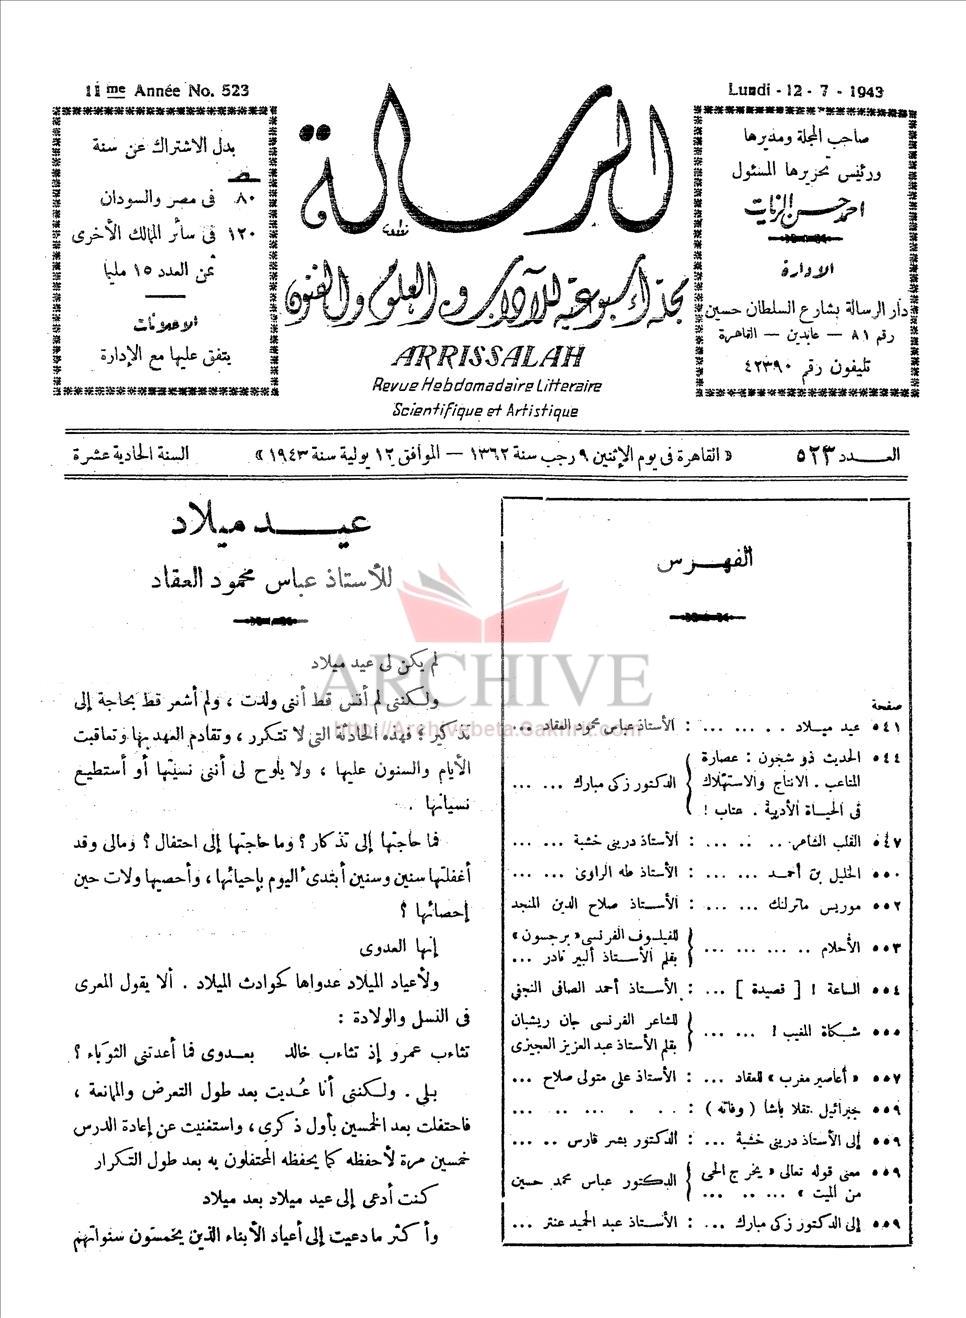 11me Année No. 523
Lundi - 12 - 7 - 1943
بدل الاشتراك عن سنة
٨٠ فى مصر والسودان
١٢٠ فى سائر الممالك الأخرى
ثمن العدد ١٥ مليما
الاعلانات
يتفق عليها مع الإدارة
الرسالة
مجلة أسبوعية للآداب والعلوم والفنون
ARRISSALAH
Revue Hebdomadaire Litteraire
Scientifique et Artistique
صاحب المجلة ومديرها
ورئيس تحريرها المسئول
احمد حسن الزيات
الادارة
دار الرسالة بشارع السلطان حسين
رقم ٨١ — عابدين — القاهرة
تليفون رقم ٤٢٣٩٠
العـــدد ٥٢٣
« القاهرة فى يوم الإثنين ٩ رجب سنة ١٣٦٢ — الموافق ١٢ يولية سنة ١٩٤٣ »
السنة الحادية عشرة
الفهـرس
صفحة
٥٤١ عيد ميلاد . . ... ... : الأستاذ عباس محمود العقاد ...
٥٤٤ الحديث ذو شجون : عصارة
المتاعب . الانتاج والاستهلاك
فى الحياة الأدبية . عتاب !
الدكتور زكى مبارك ... ...
٥٤٧ القلب الشاعر. .. .. ... : الأستاذ درينى خشبة ... ...
٥٥٠ الخليل بن أحمد ... ... : الأستاذ طه الراوى ... ...
٥٥٢ موريس ماترلنك ... ... : الأستاذ صلاح الدين المنجد
٥٥٣ الأحلام .. ... ... ...
للفيلسوف الفرنسى « برجسون »
بقلم الأستاذ ألبير نادر ...
٥٥٤ الساعة ! [ قصيدة ] ... : الأستاذ أحمد الصافى النجفى
٥٥٥ شكاة المغيب ! ... ...
للشاعر الفرنسى جان ريشبان
بقلم الأستاذ عبد العزيز العجيزى
٥٥٧ « أعاصير مغرب » للعقاد ... : الأستاذ على متولى صلاح ...
٥٥٩ جبرائيل تقلا باشا ( وفاته ) : .. . ... .. ..
٥٥٩ إلى الأستاذ درينى خشبة ... : الدكتور بشر فارس .. ...
٥٥٩ معنى قوله تعالى « يخرج الحى
من الميت » ... .. ...
الدكتور عباس محمد حسين
٥٥٩ إلى الدكتور زكى مبارك ... : الأستاذ عبد الحميد عنتر ...
عيـــد ميلاد
للأستاذ عباس محمود العقاد
لم يكن لى عيد ميلاد
ولكننى لم أنس قط أننى ولدت ، ولم أشعر قط بحاجة إلى
تذكير ؛ فهذه الحادثة التى لا تتكرر ، وتقادم العهد بها وتعاقبت
الأيام والسنون عليها ، ولا يلوح لى أننى نسيتها أو أستطيع
نسيانها .
فما حاجتها إلى تذكار ؟ وما حاجتها إلى احتفال ؟ ومالى وقد
أغفلتها سنين وسنين أبتدئ اليوم بإحيائها ، وأحصيها ولات حين
إحصائها ؟
إنها العدوى
ولأعياد الميلاد عدواها كحوادث الميلاد . ألا يقول المعرى
فى النسل والولادة :
تثاءب عمرو إذ تثاءب خالد بعدوى فما أعدتنى الثوَباء ؟
بلى . ولكننى أنا عُديت بعد طول التعرض والممانعة ،
فاحتفلت بعد الخمسين بأول ذكرى ، واستغنيت عن إعادة الدرس
خمسين مرة لأحفظه كما يحفظه المحتفلون به بعد طول التكرار
كنت أدعى إلى عيد ميلاد بعد ميلاد
وأكثر ما دعيت إلى أعياد الأبناء الذين يختمسون سنواتهم
ARCHIVE
http://Archivebeta.Sakhrit.com